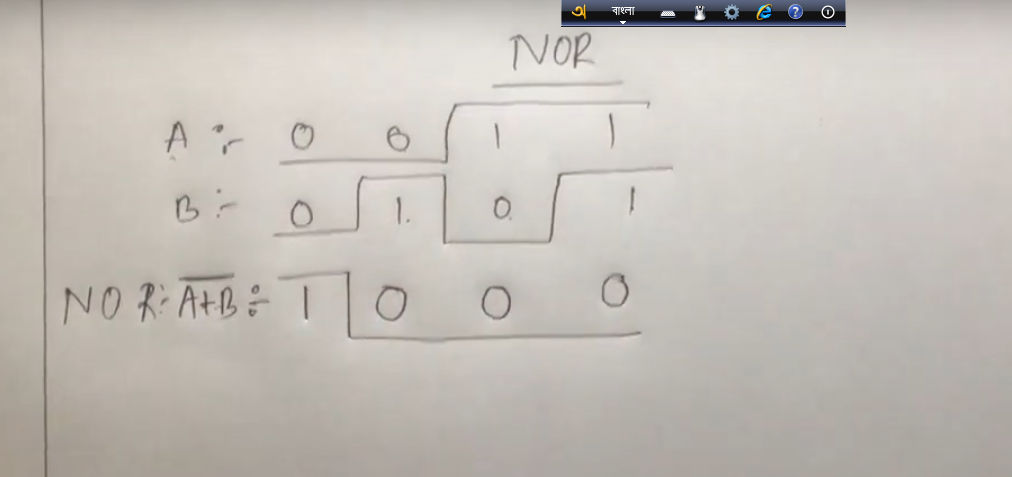 বাংলা
NOR
A :- 0 0 1 1
B :- 0 1 0 1
NOR :- \overline{A+B} ÷ 1 0 0 0